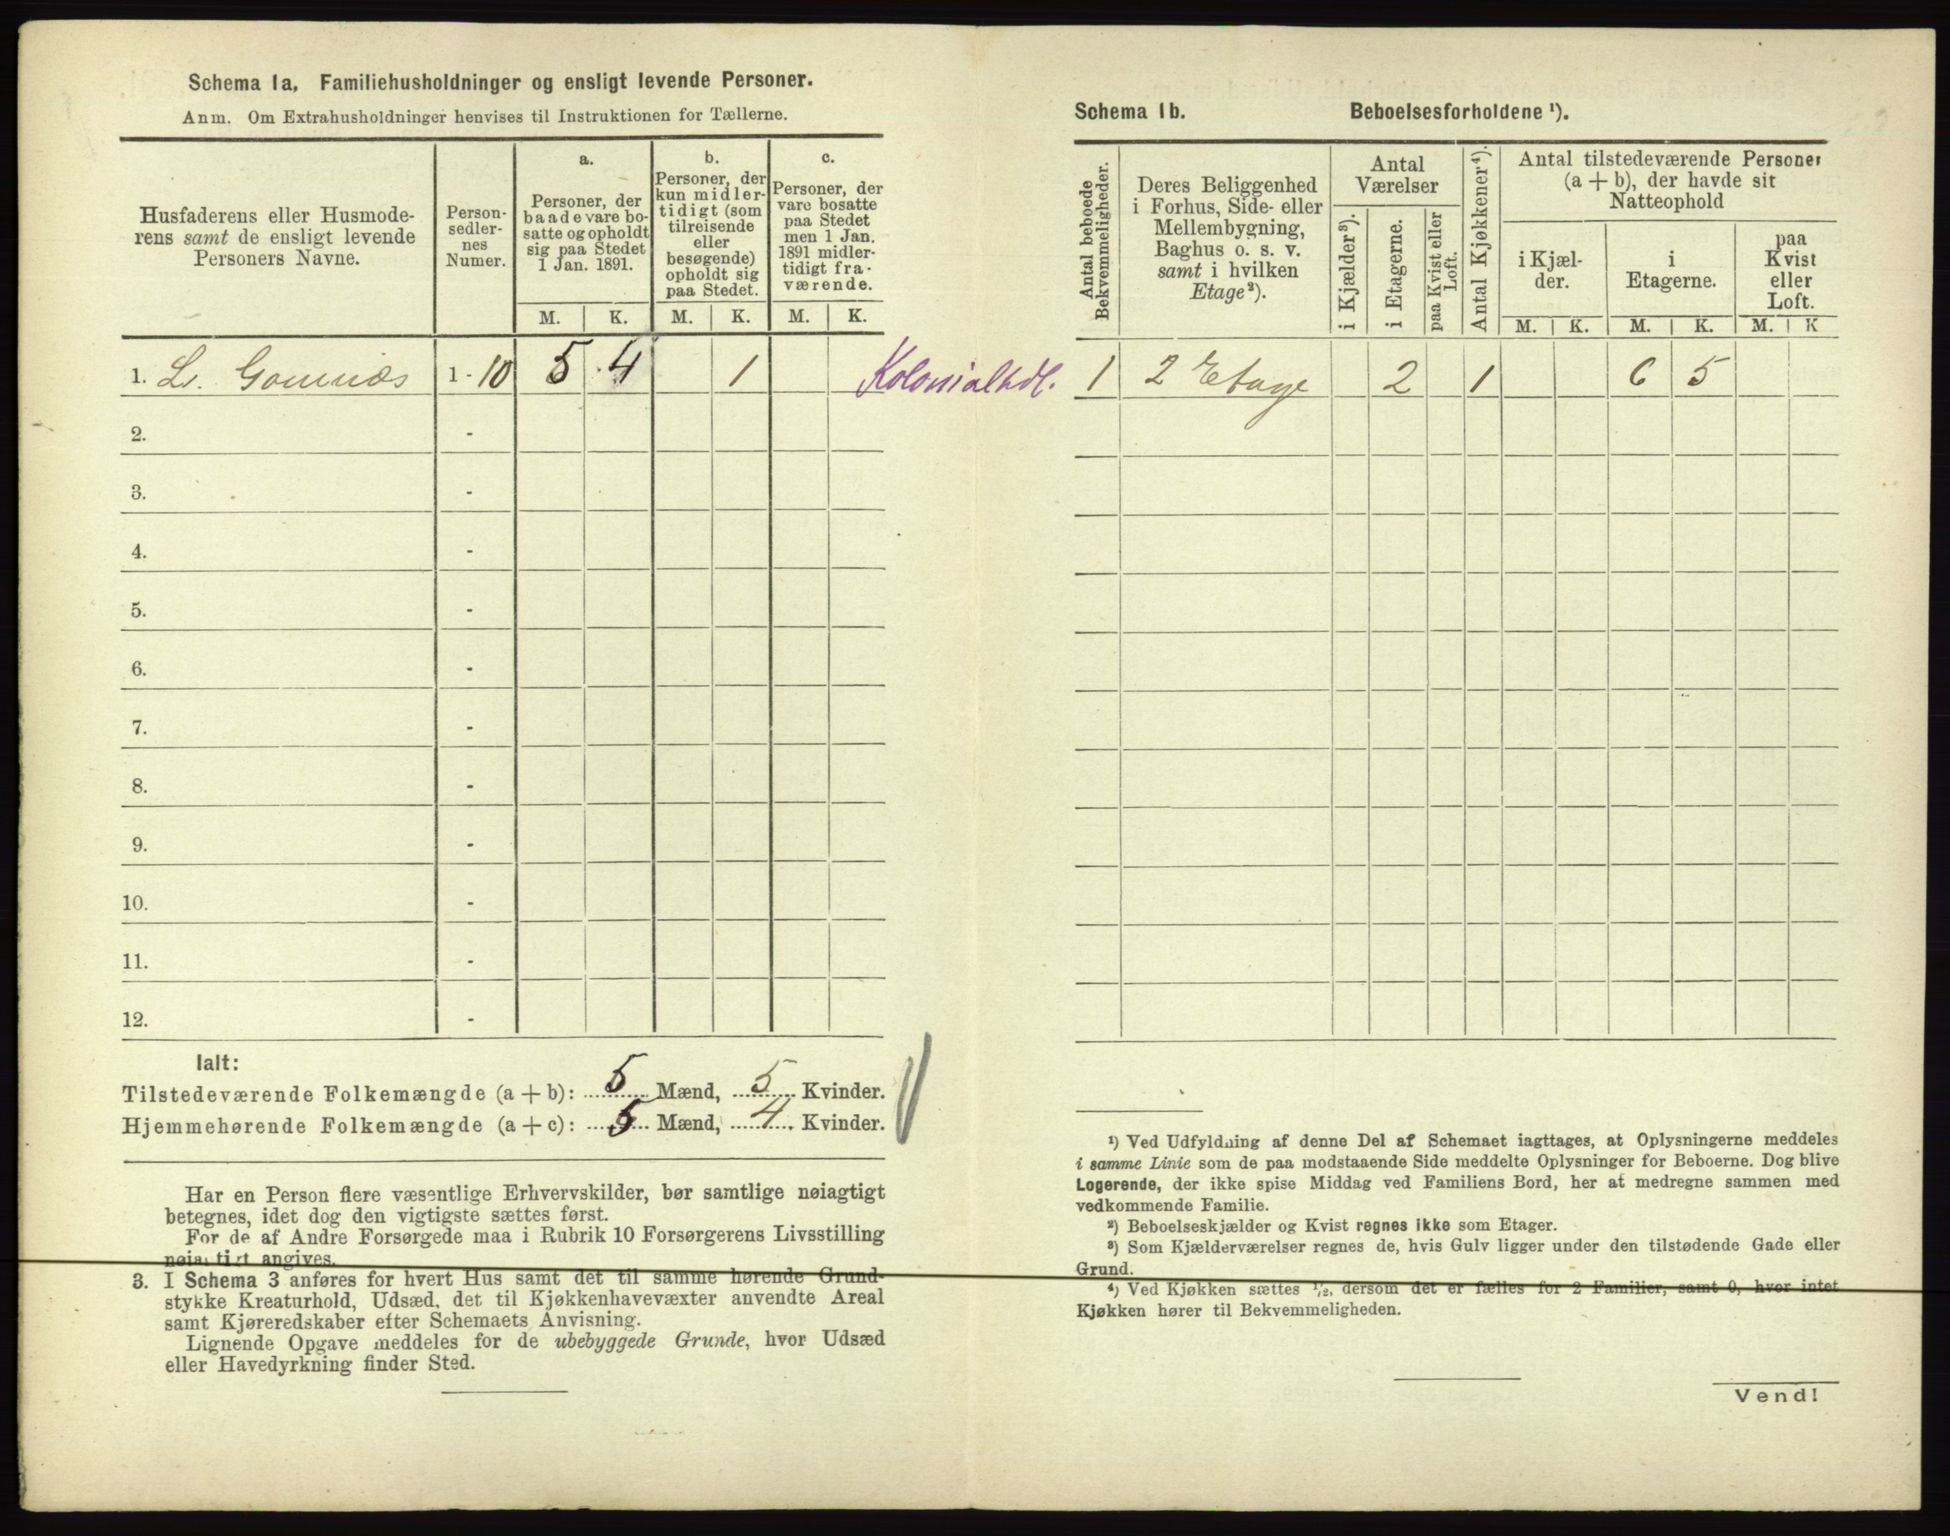 Schema 1a. Familiehusholdninger og ensligt levende Personer.
Anm. Om Extrahusholdninger henvises til Instruktionen for Tællerne.
Husfaderens eller Husmoderens samt de ensligt levende Personers Navne.
Personsedlernes Numer.
a.
Personer, der baade vare bosatte og opholdt sig paa Stedet 1 Jan. 1891.
b.
Personer, der kun midlertidigt (som tilreisende eller besøgende) opholdt sig paa Stedet.
c.
Personer, der vare bosatte paa Stedet men 1 Jan. 1891 midlertidigt fraværende.
M. K. M. K. M. K.
1. 1 - 10 5 4 1 Kolonialhdl.
2. -
3. -
4. -
5. -
6. -
7. -
8. -
9. -
10. -
11. -
12. -
Ialt:
Tilstedeværende Folkemængde (a + b): 5 Mænd, 5 Kvinder.
Hjemmehørende Folkemængde (a + c): 5 Mænd, 4 Kvinder.
Har en Person flere væsentlige Erhvervskilder, bør samtlige nøiagtigt
betegnes, idet dog den vigtigste sættes først.
For de af Andre Forsørgede maa i Rubrik 10 Forsørgerens Livsstilling
nøiagtigt angives.
3. I Schema 3 anføres for hvert Hus samt det til samme hørende Grund-
stykke Kreaturhold, Udsæd, det til Kjøkkenhavevæxter anvendte Areal
samt Kjøreredskaber efter Schemaets Anvisning.
Lignende Opgave meddeles for de ubebyggede Grunde, hvor Udsæd
eller Havedyrkning finder Sted.
Schema 1b. Beboelsesforholdene ¹).
Antal beboede Bekvemmeligheder.
Deres Beliggenhed i Forhus, Side- eller Mellembygning, Baghus o. s. v. samt i hvilken Etage²).
Antal Værelser
i Kjælder³).
i Etagerne.
paa Kvist eller Loft.
Antal Kjøkkener⁴).
Antal tilstedeværende Personer (a + b), der havde sit Natteophold
i Kjælder.
i Etagerne.
paa Kvist eller Loft.
M. K. M. K. M. K
1 2 Etage 2 1 6 5
¹) Ved Udfyldning af denne Del af Schemaet iagttages, at Oplysningerne meddeles
i samme Linie som de paa modstaaende Side meddelte Oplysninger for Beboerne. Dog blive
Logerende, der ikke spise Middag ved Familiens Bord, her at medregne sammen med
vedkommende Familie.
²) Beboelseskjælder og Kvist regnes ikke som Etager.
³) Som Kjælderværelser regnes de, hvis Gulv ligger under den tilstødende Gade eller
Grund.
⁴) Ved Kjøkken sættes ¹/₂, dersom det er fælles for 2 Familier, samt 0, hvor intet
Kjøkken hører til Bekvemmeligheden.
Vend!